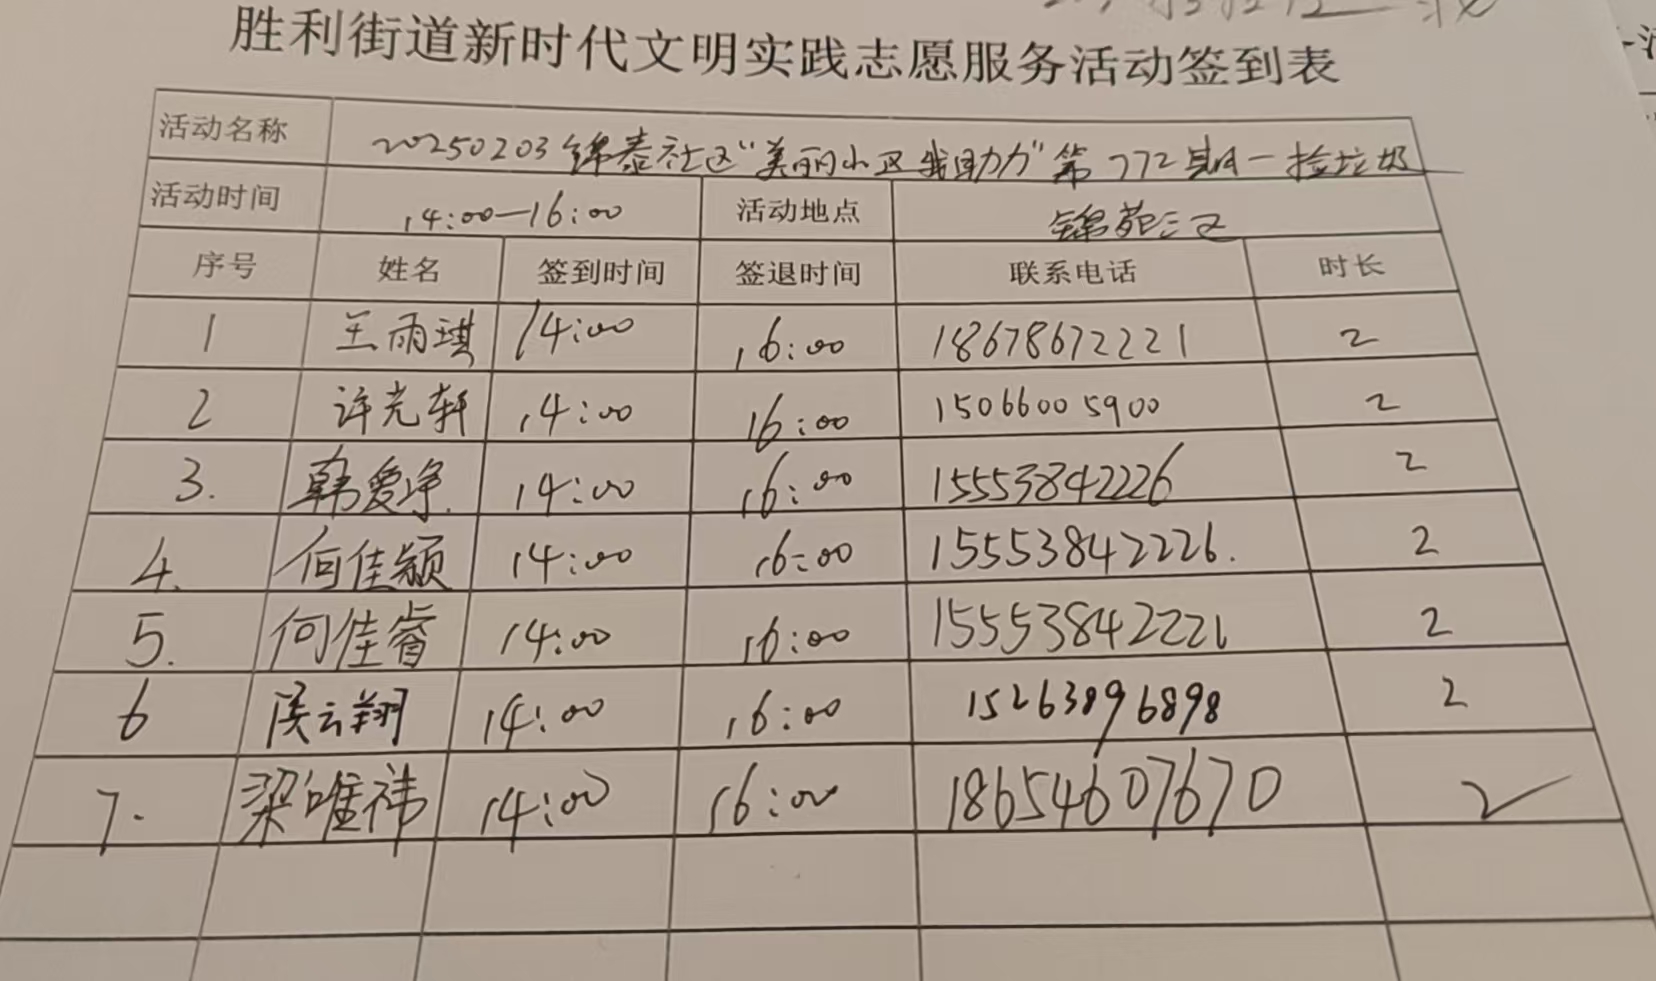 胜利街道新时代文明实践志愿服务活动签到表
活动名称 20250203锦泰社区“美丽小区我助力”第772期一捡垃圾
活动时间 14:00—16:00 活动地点 锦苑三区
序号 姓名 签到时间 签退时间 联系电话 时长
1 王雨琪 14:00 16:00 18678672221 2
2 许光轩 14:00 16:00 15066005900 2
3. 韩爱净 14:00 16:00 15553842226 2
4. 何佳颖 14:00 16:00 15553842226. 2
5. 何佳睿 14:00 16:00 15553842226 2
6 云翔 14:00 16:00 15263896898 2
7. 梁唯祎 14:00 16:00 18654607670 2